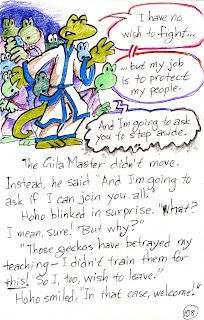 I have no
wish to fight...
...but my job
is to protect
my people.
And I'm going to ask
you to step aside.
The Gila Master didn't move.
Instead, he said "And I'm going to
ask if I can join you all."
Hoho blinked in surprise. "What?
I mean, sure! But why?"
"Those geckos have betrayed my
teaching—I didn't train them for
this! So I, too, wish to leave."
Hoho smiled, "In that case, welcome!"
108